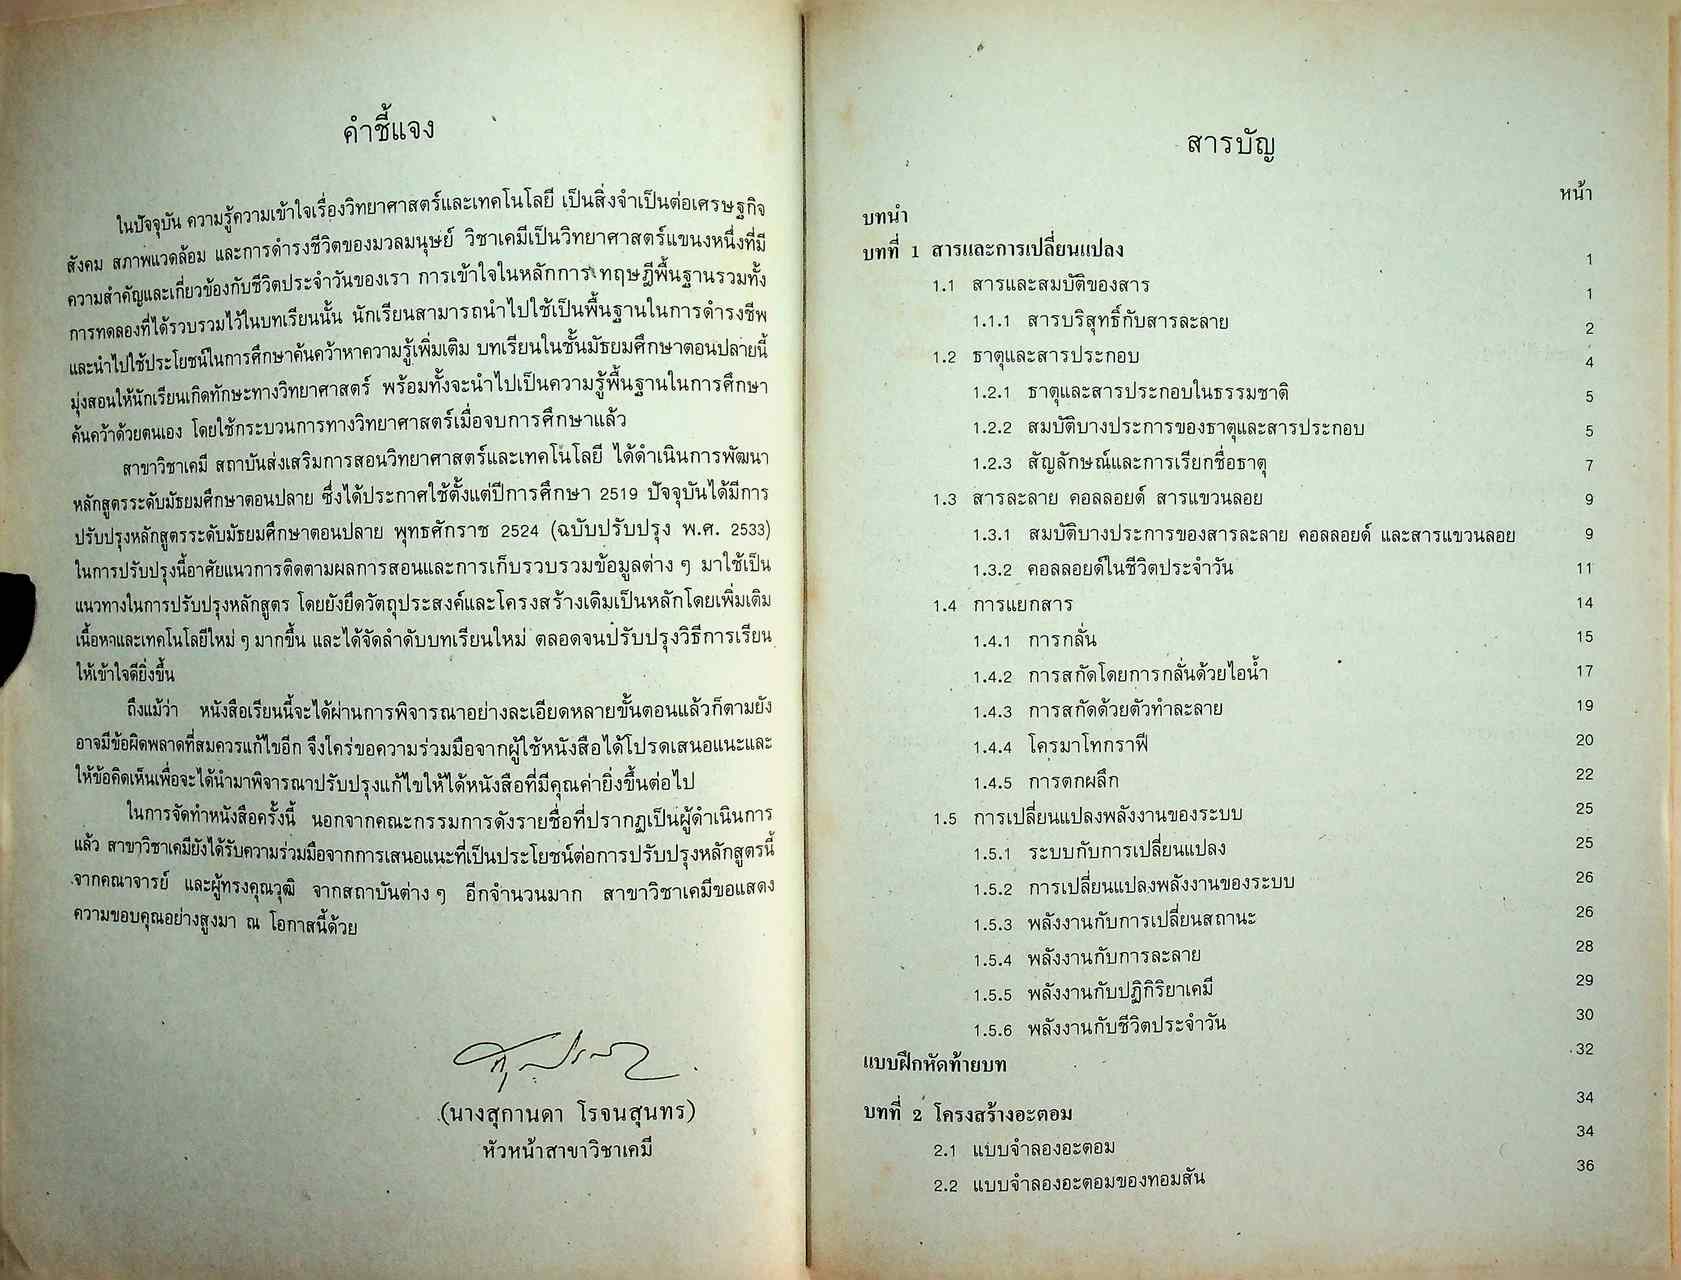 คำชี้แจง
ในปัจจุบัน ความรู้ความเข้าใจเรื่องวิทยาศาสตร์และเทคโนโลยี เป็นสิ่งจำเป็นต่อเศรษฐกิจ
สังคม สภาพแวดล้อม และการดำรงชีวิตของมวลมนุษย์ วิชาเคมีเป็นวิทยาศาสตร์แขนงหนึ่งที่มี
ความสำคัญและเกี่ยวข้องกับชีวิตประจำวันของเรา การเข้าใจในหลักการ ทฤษฎีพื้นฐานรวมทั้ง
การทดลองที่ได้รวบรวมไว้ในบทเรียนนั้น นักเรียนสามารถนำไปใช้เป็นพื้นฐานในการดำรงชีพ
และนำไปใช้ประโยชน์ในการศึกษาค้นคว้าหาความรู้เพิ่มเติม บทเรียนในชั้นมัธยมศึกษาตอนปลายนี้
มุ่งสอนให้นักเรียนเกิดทักษะทางวิทยาศาสตร์ พร้อมทั้งจะนำไปเป็นความรู้พื้นฐานในการศึกษา
ค้นคว้าด้วยตนเอง โดยใช้กระบวนการทางวิทยาศาสตร์เมื่อจบการศึกษาแล้ว
สาขาวิชาเคมี สถาบันส่งเสริมการสอนวิทยาศาสตร์และเทคโนโลยี ได้ดำเนินการพัฒนา
หลักสูตรระดับมัธยมศึกษาตอนปลาย ซึ่งได้ประกาศใช้ตั้งแต่ปีการศึกษา 2519 ปัจจุบันได้มีการ
ปรับปรุงหลักสูตรระดับมัธยมศึกษาตอนปลาย พุทธศักราช 2524 (ฉบับปรับปรุง พ.ศ. 2533)
ในการปรับปรุงนี้อาศัยแนวการติดตามผลการสอนและการเก็บรวบรวมข้อมูลต่าง ๆ มาใช้เป็น
แนวทางในการปรับปรุงหลักสูตร โดยยังยึดวัตถุประสงค์และโครงสร้างเดิมเป็นหลักโดยเพิ่มเติม
เนื้อหาและเทคโนโลยีใหม่ ๆ มากขึ้น และได้จัดลำดับบทเรียนใหม่ ตลอดจนปรับปรุงวิธีการเรียน
ให้เข้าใจดียิ่งขึ้น
ถึงแม้ว่า หนังสือเรียนนี้จะได้ผ่านการพิจารณาอย่างละเอียดหลายขั้นตอนแล้วก็ตามยัง
อาจมีข้อผิดพลาดที่สมควรแก้ไขอีก จึงใคร่ขอความร่วมมือจากผู้ใช้หนังสือได้โปรดเสนอแนะและ
ให้ข้อคิดเห็นเพื่อจะได้นำมาพิจารณาปรับปรุงแก้ไขให้ได้หนังสือที่มีคุณค่ายิ่งขึ้นต่อไป
ในการจัดทำหนังสือครั้งนี้ นอกจากคณะกรรมการดังรายชื่อที่ปรากฏเป็นผู้ดำเนินการ
แล้ว สาขาวิชาเคมียังได้รับความร่วมมือจากการเสนอแนะที่เป็นประโยชน์ต่อการปรับปรุงหลักสูตรนี้
จากคณาจารย์ และผู้ทรงคุณวุฒิ จากสถาบันต่าง ๆ อีกจำนวนมาก สาขาวิชาเคมีขอแสดง
ความขอบคุณอย่างสูงมา ณ โอกาสนี้ด้วย
(นางสุกานดา โรจนสุนทร)
หัวหน้าสาขาวิชาเคมี
สารบัญ
หน้า
บทนำ
บทที่ 1 สารและการเปลี่ยนแปลง 1
1.1 สารและสมบัติของสาร 1
1.1.1 สารบริสุทธิ์กับสารละลาย 2
1.2 ธาตุและสารประกอบ 4
1.2.1 ธาตุและสารประกอบในธรรมชาติ 5
1.2.2 สมบัติบางประการของธาตุและสารประกอบ 5
1.2.3 สัญลักษณ์และการเรียกชื่อธาตุ 7
1.3 สารละลาย คอลลอยด์ สารแขวนลอย 9
1.3.1 สมบัติบางประการของสารละลาย คอลลอยด์ และสารแขวนลอย 9
1.3.2 คอลลอยด์ในชีวิตประจำวัน 11
1.4 การแยกสาร 14
1.4.1 การกลั่น 15
1.4.2 การสกัดโดยการกลั่นด้วยไอน้ำ 17
1.4.3 การสกัดด้วยตัวทำละลาย 19
1.4.4 โครมาโทกราฟี 20
1.4.5 การตกผลึก 22
1.5 การเปลี่ยนแปลงพลังงานของระบบ 25
1.5.1 ระบบกับการเปลี่ยนแปลง 25
1.5.2 การเปลี่ยนแปลงพลังงานของระบบ 26
1.5.3 พลังงานกับการเปลี่ยนสถานะ 26
1.5.4 พลังงานกับการละลาย 28
1.5.5 พลังงานกับปฏิกิริยาเคมี 29
1.5.6 พลังงานกับชีวิตประจำวัน 30
แบบฝึกหัดท้ายบท 32
บทที่ 2 โครงสร้างอะตอม 34
2.1 แบบจำลองอะตอม 34
2.2 แบบจำลองอะตอมของทอมสัน 36